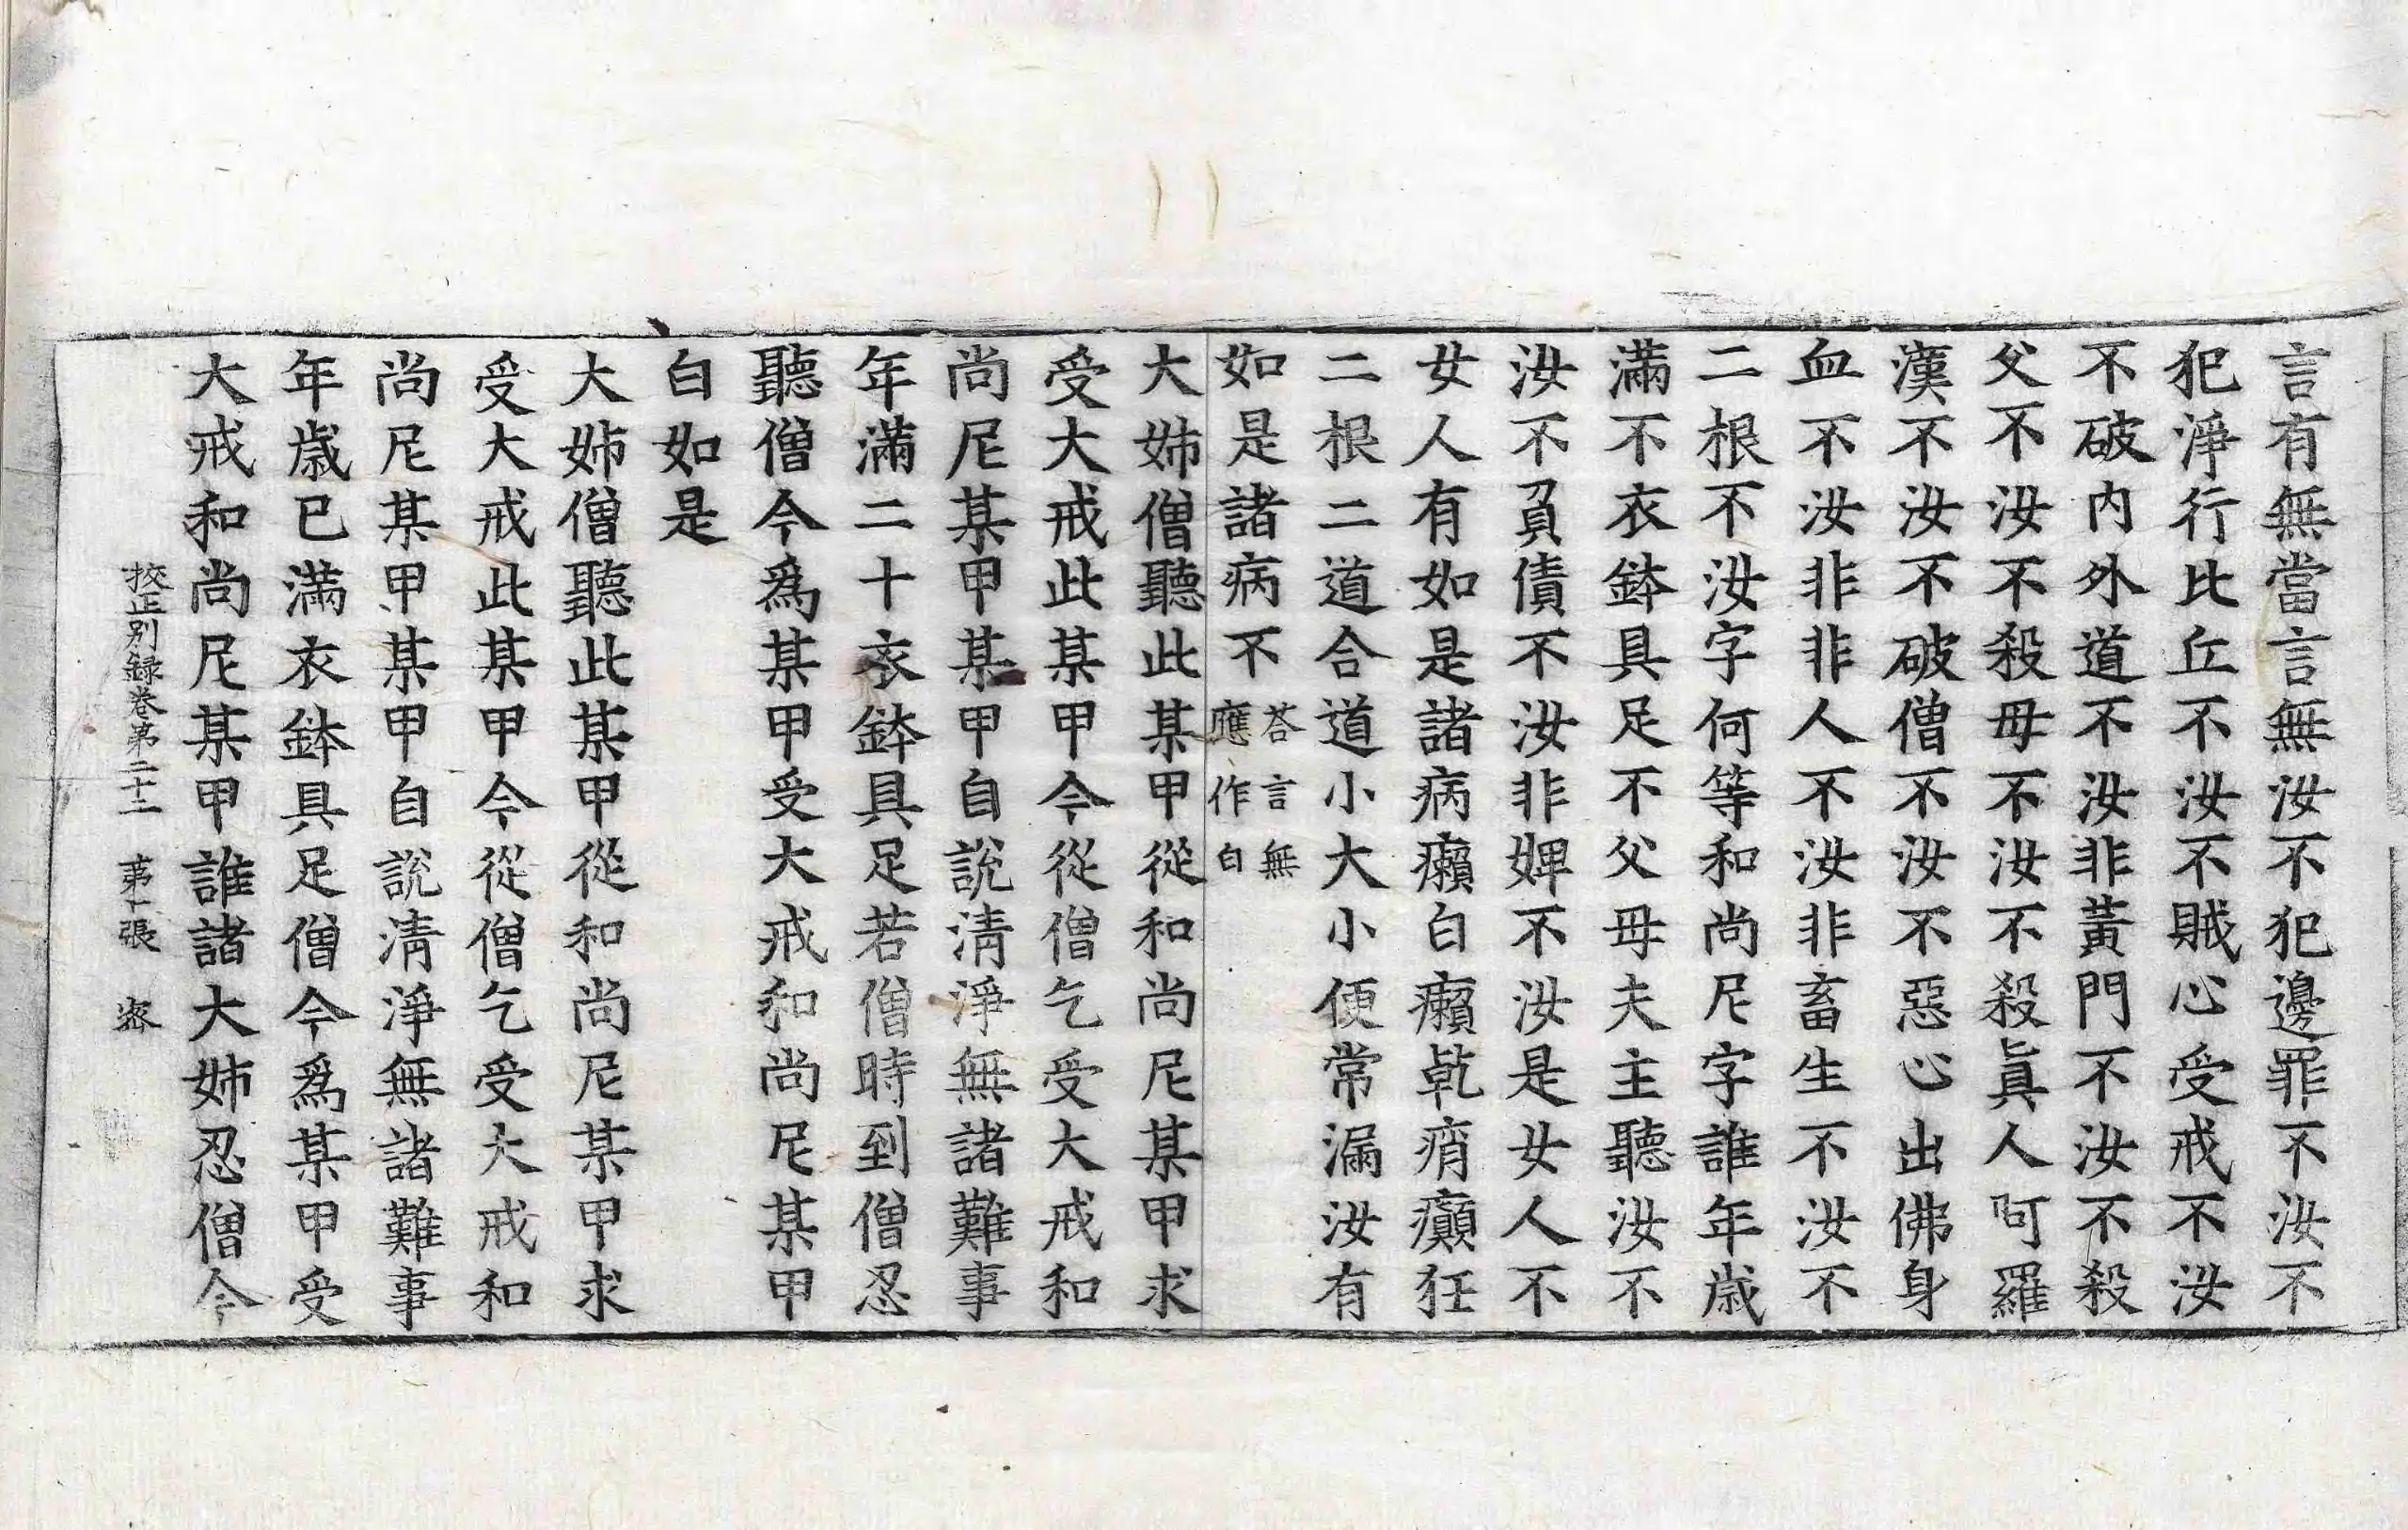 言有無當言無汝不犯邊罪不汝不
犯淨行比丘不汝不賊心受戒不汝
不破內外道不汝非黃門不汝不殺
父不汝不殺母不汝不殺眞人呵羅
漢不汝不破僧不汝不惡心出佛身
血不汝非非人不汝非畜生不汝不
二根不汝字何等和尚尼字誰年歲
滿不衣鉢具足不父母夫主聽汝不
汝不負債不汝非婢不汝是女人不
女人有如是諸病癩白癩乹痟癲狂
二根二道合道小大小便常漏汝有
如是諸病不荅言無應作白
大姉僧聽此某甲從和尚尼某甲求
受大戒此某甲今從僧乞受大戒和
尚尼某甲某甲自說清淨無諸難事
年滿二十衣鉢具足若僧時到僧忍
聽僧今爲某甲受大戒和尚尼某甲
白如是
大姉僧聽此某甲從和尚尼某甲求
受大戒此某甲今從僧乞受大戒和
尚尼某甲某甲自說清淨無諸難事
年歲已滿衣鉢具足僧今爲某甲受
大戒和尚尼某甲誰諸大姉忍僧今
挍正別録卷第二十二 第一張 宓